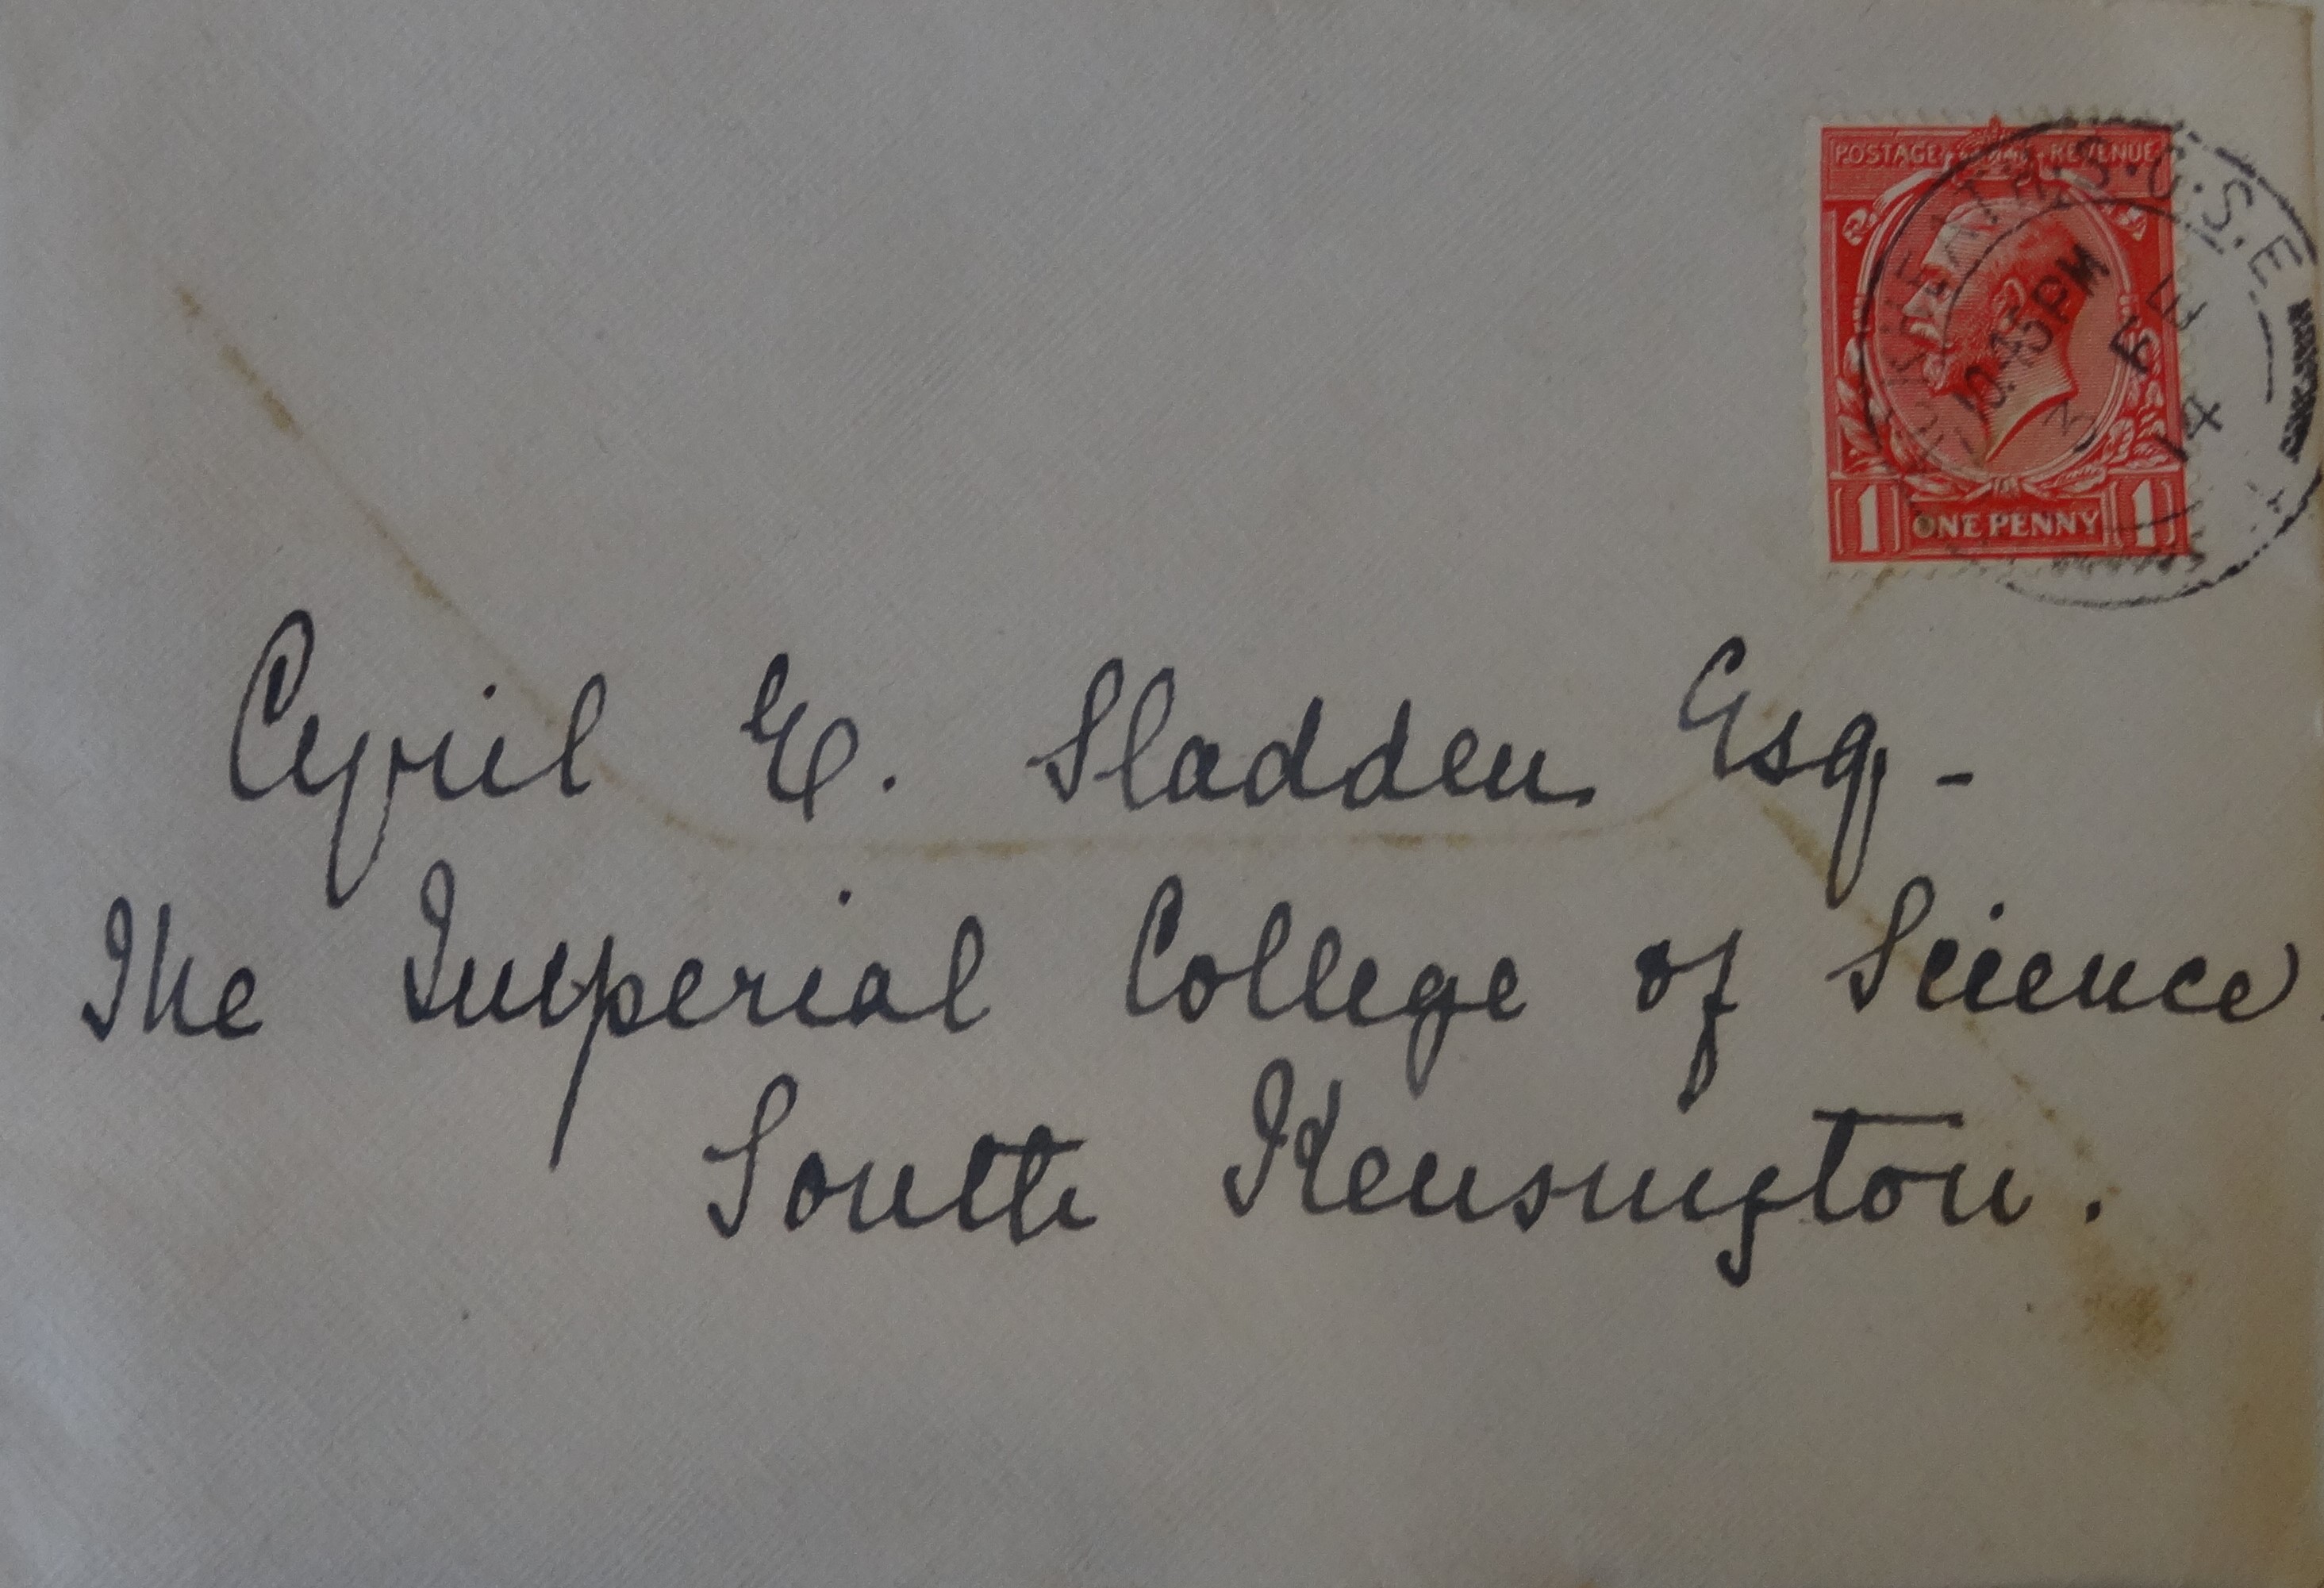 POSTAGE REVENUE
S.E.
10.45PM
FE
14
1 ONE PENNY 1
Cyril E. Sladden Esq -
The Imperial College of Science.
South Kensington.